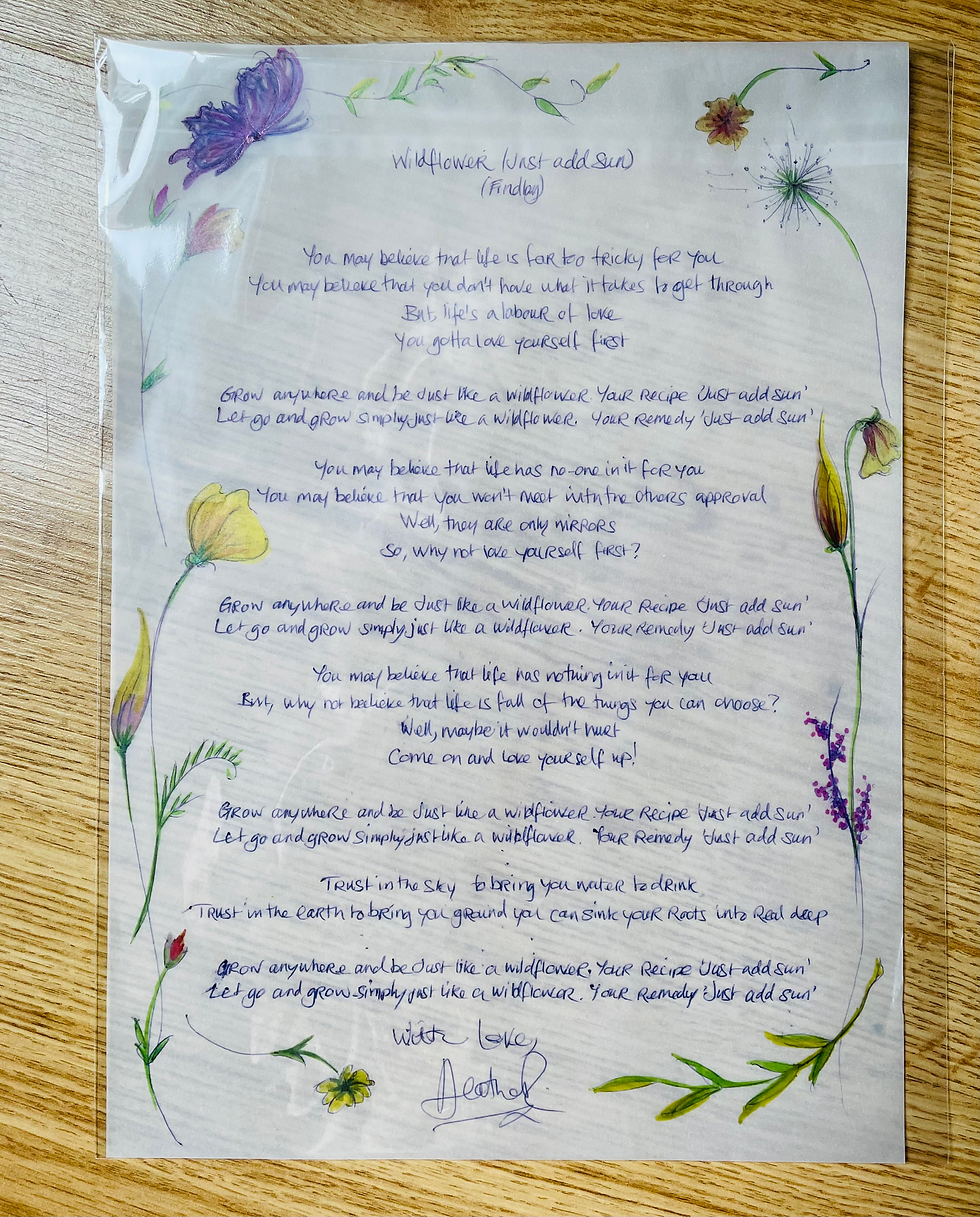 Wildflower (Just add sun)
(Findlay)
You may believe that life is far too tricky for you
You may believe that you don't have what it takes to get through
But, life's a labour of love
You gotta love yourself first
Grow anywhere and be Just like a wildflower. Your Recipe 'Just add sun'
Let go and grow simply, just like a wildflower. Your Remedy 'Just add sun'
You may believe that life has no-one in it for you
You may believe that you won't meet with the others approval
Well, they are only mirrors
So, why not love yourself first?
Grow anywhere and be Just like a wildflower. Your Recipe 'Just add sun'
Let go and grow simply, just like a wildflower. Your Remedy 'Just add sun'
You may believe that life has nothing in it for you
But, why not believe that life is full of the things you can choose?
Well, maybe it wouldn't hurt
Come on and love yourself up!
Grow anywhere and be Just like a wildflower. Your Recipe 'Just add sun'
Let go and grow simply, just like a wildflower. Your Remedy 'Just add sun'
Trust in the sky to bring you water to drink
Trust in the earth to bring you ground you can sink your roots into real deep
Grow anywhere and be Just like a wildflower. Your Recipe 'Just add sun'
Let go and grow simply, just like a wildflower. Your Remedy 'Just add sun'
With Love,
Heather